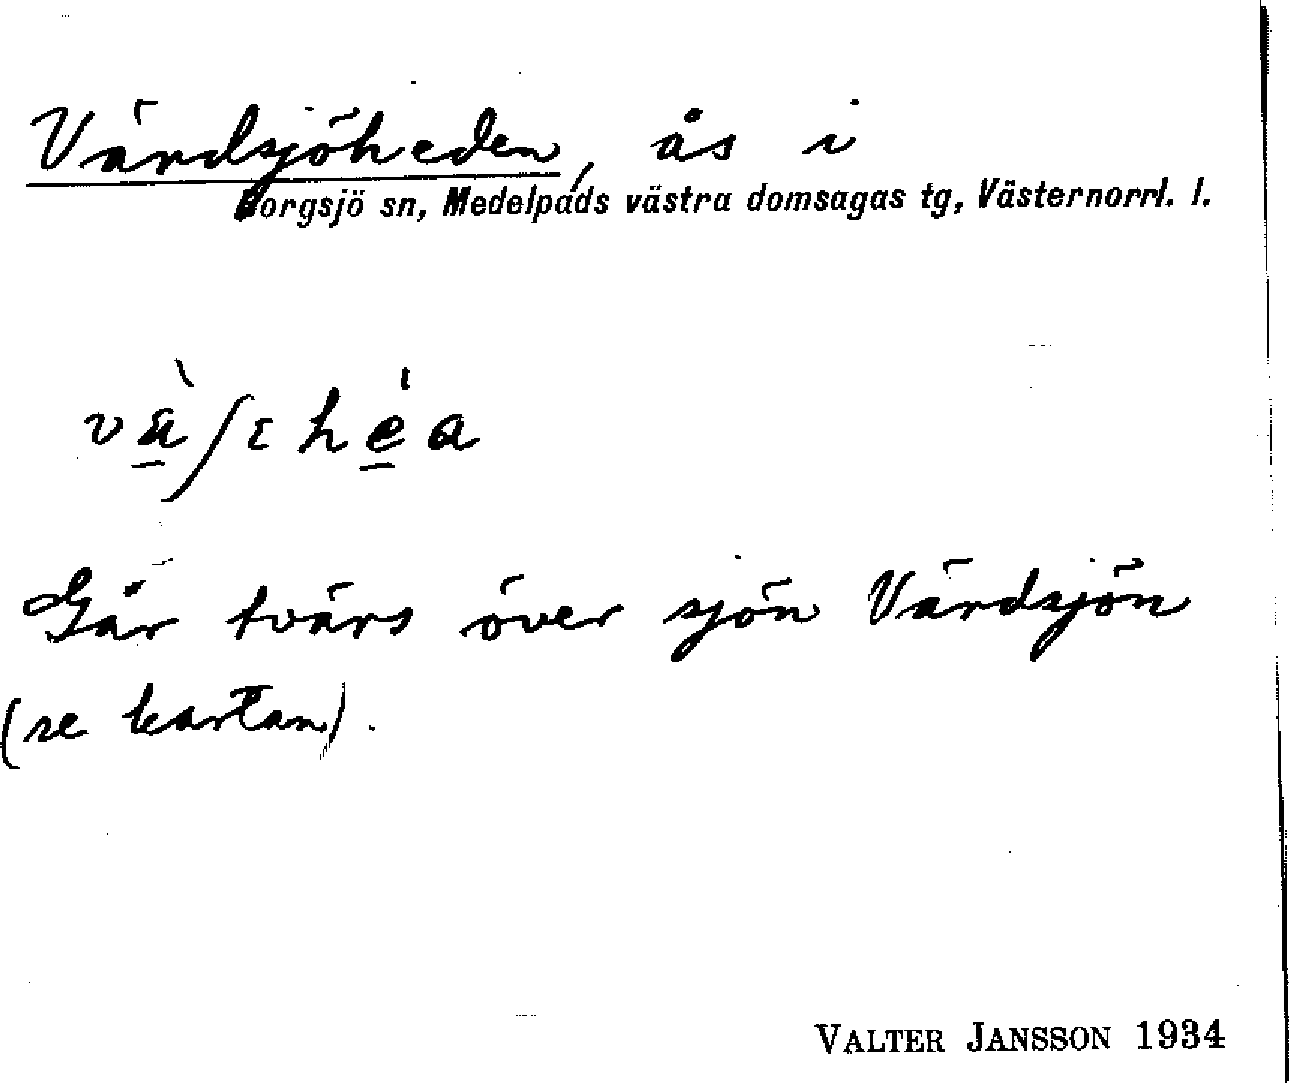 Värdsjöheden, ås i
Borgsjö sn, Medelpads västra domsagas tg, Västernorrl. l.
Går tvärs över sjön Värdsjön
(se kartan).
VALTER JANSSON 1934